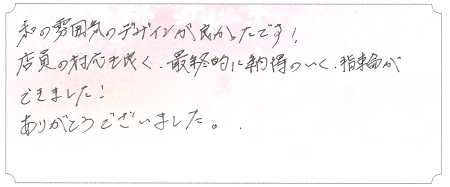 和の雰囲気のデザインが良かったです！
店員の対応も良く、最終的に納得のいく、指輪が
できました！
ありがとうございました。